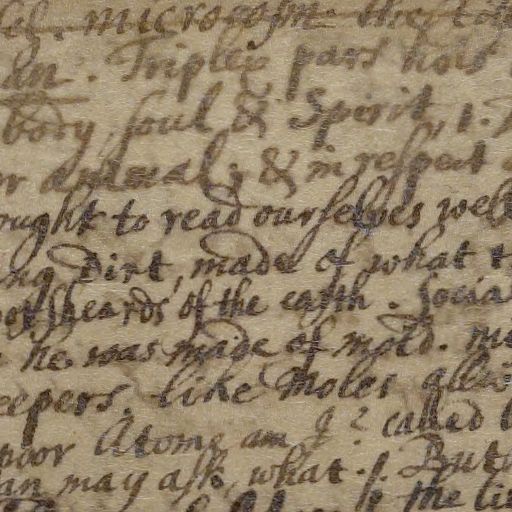 microcosm. the
an. Triplex pars hois
body, soul & Spirit, 1.
or animal; & in respect
ought to read ourselves well
ng Dirt, made of what
potsheards of the earth. Socia
he was made of mold.
eepers, like Moles
poor Atome am I? called
an may ask, what. But
the